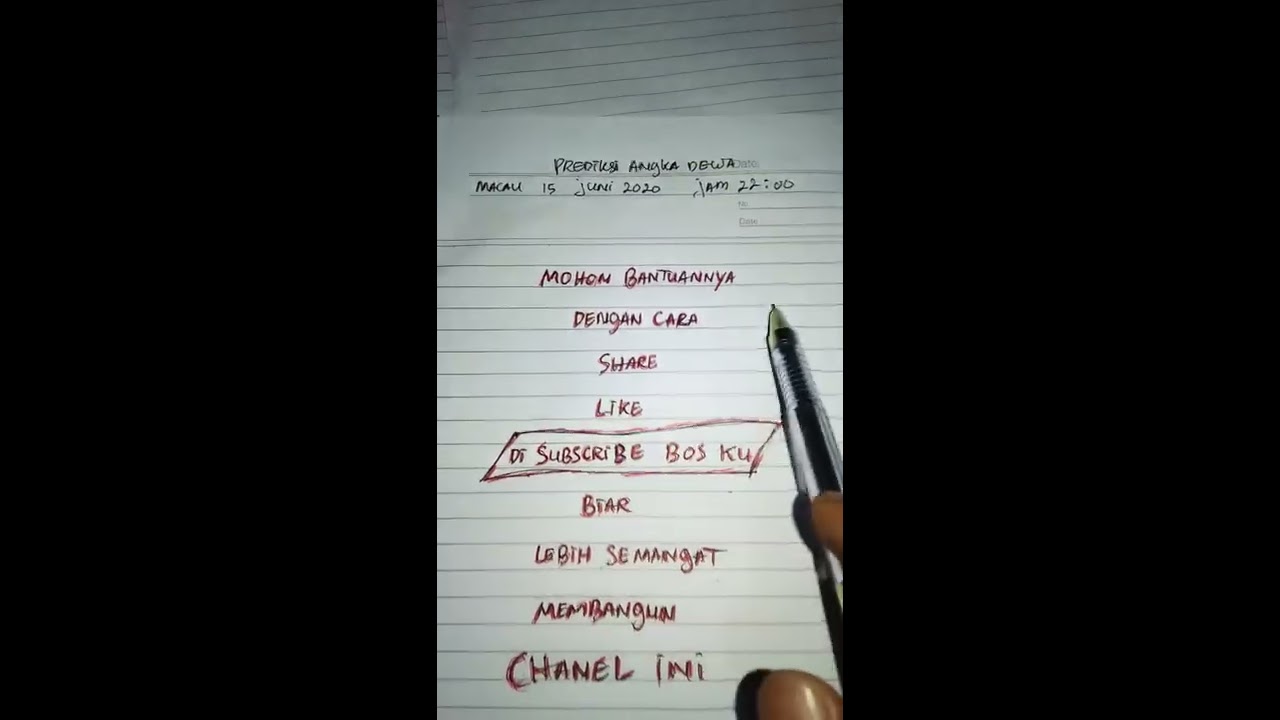 PREDIKSI ANGKA DEWA
Date:
MACAU 15 JUNI 2020 JAM 22:00
No
Date
MOHON BANTUANNYA
DENGAN CARA
SHARE
LIKE
DI SUBSCRIBE BOS KU
BIAR
LEBIH SEMANGAT
MEMBANGUN
CHANEL INI